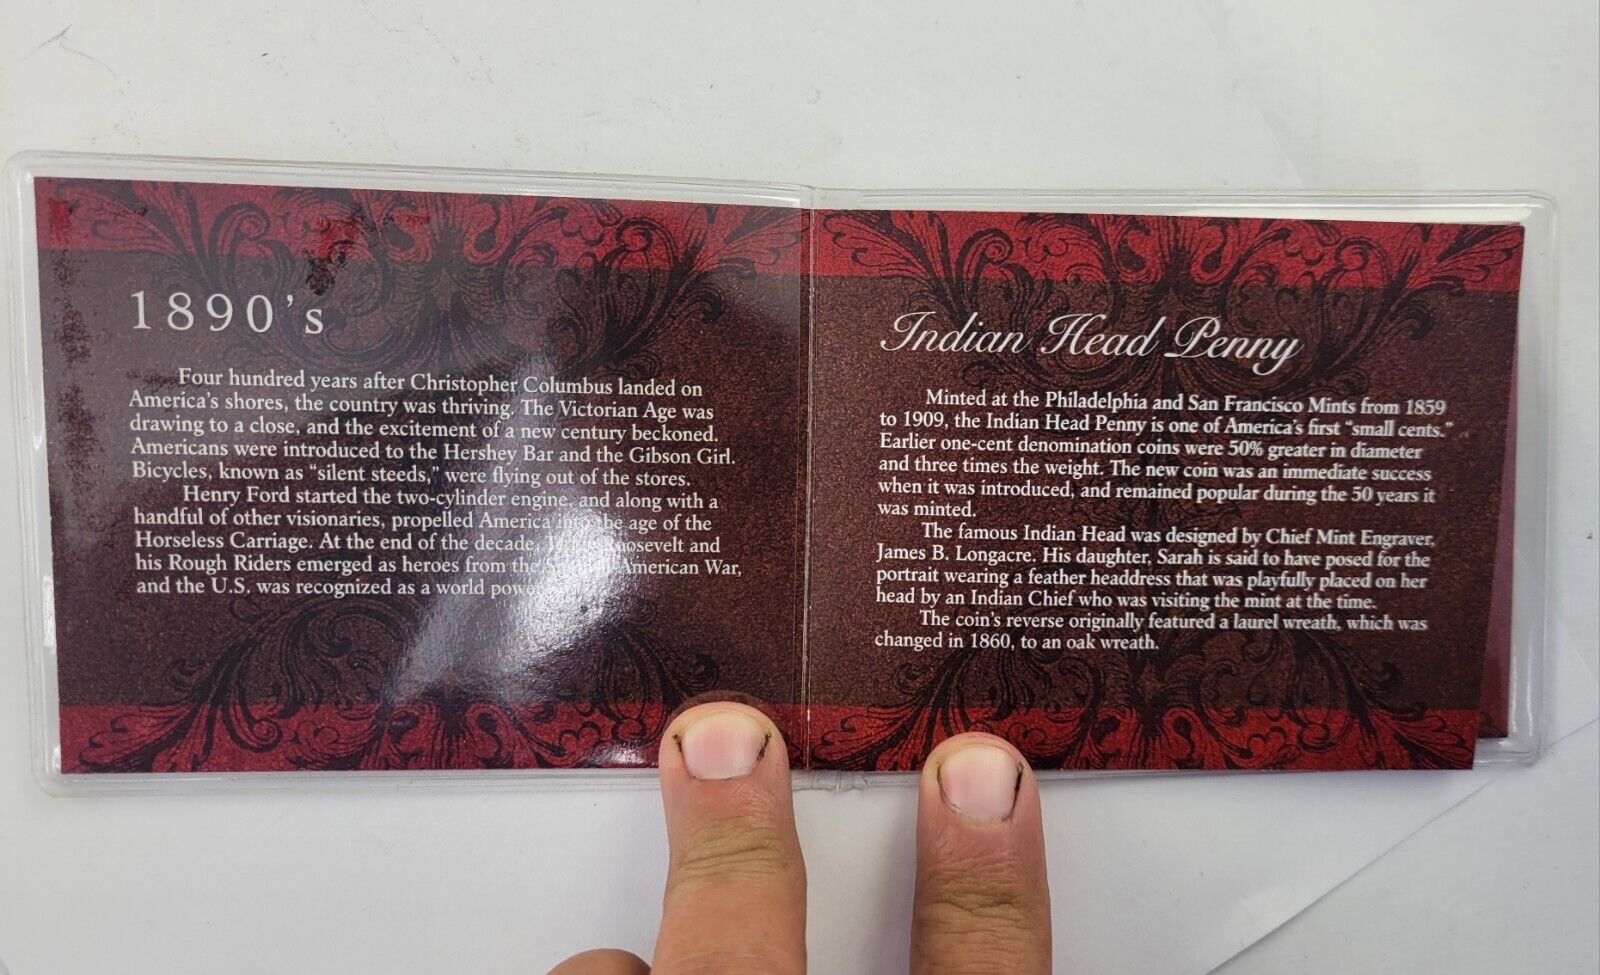 1890's
Four hundred years after Christopher Columbus landed on
America's shores, the country was thriving. The Victorian Age was
drawing to a close, and the excitement of a new century beckoned.
Americans were introduced to the Hershey Bar and the Gibson Girl.
Bicycles, known as "silent steeds," were flying out of the stores.
Henry Ford started the two-cylinder engine, and along with a
handful of other visionaries, propelled America into the age of the
Horseless Carriage. At the end of the decade, Roosevelt and
his Rough Riders emerged as heroes from the American War,
and the U.S. was recognized as a world
Indian Head Penny
Minted at the Philadelphia and San Francisco Mints from 1859
to 1909, the Indian Head Penny is one of America's first "small cents."
Earlier one-cent denomination coins were 50% greater in diameter
and three times the weight. The new coin was an immediate success
when it was introduced, and remained popular during the 50 years it
was minted.
The famous Indian Head was designed by Chief Mint Engraver,
James B. Longacre. His daughter, Sarah is said to have posed for the
portrait wearing a feather headdress that was playfully placed on her
head by an Indian Chief who was visiting the mint at the time.
The coin's reverse originally featured a laurel wreath, which was
changed in 1860, to an oak wreath.